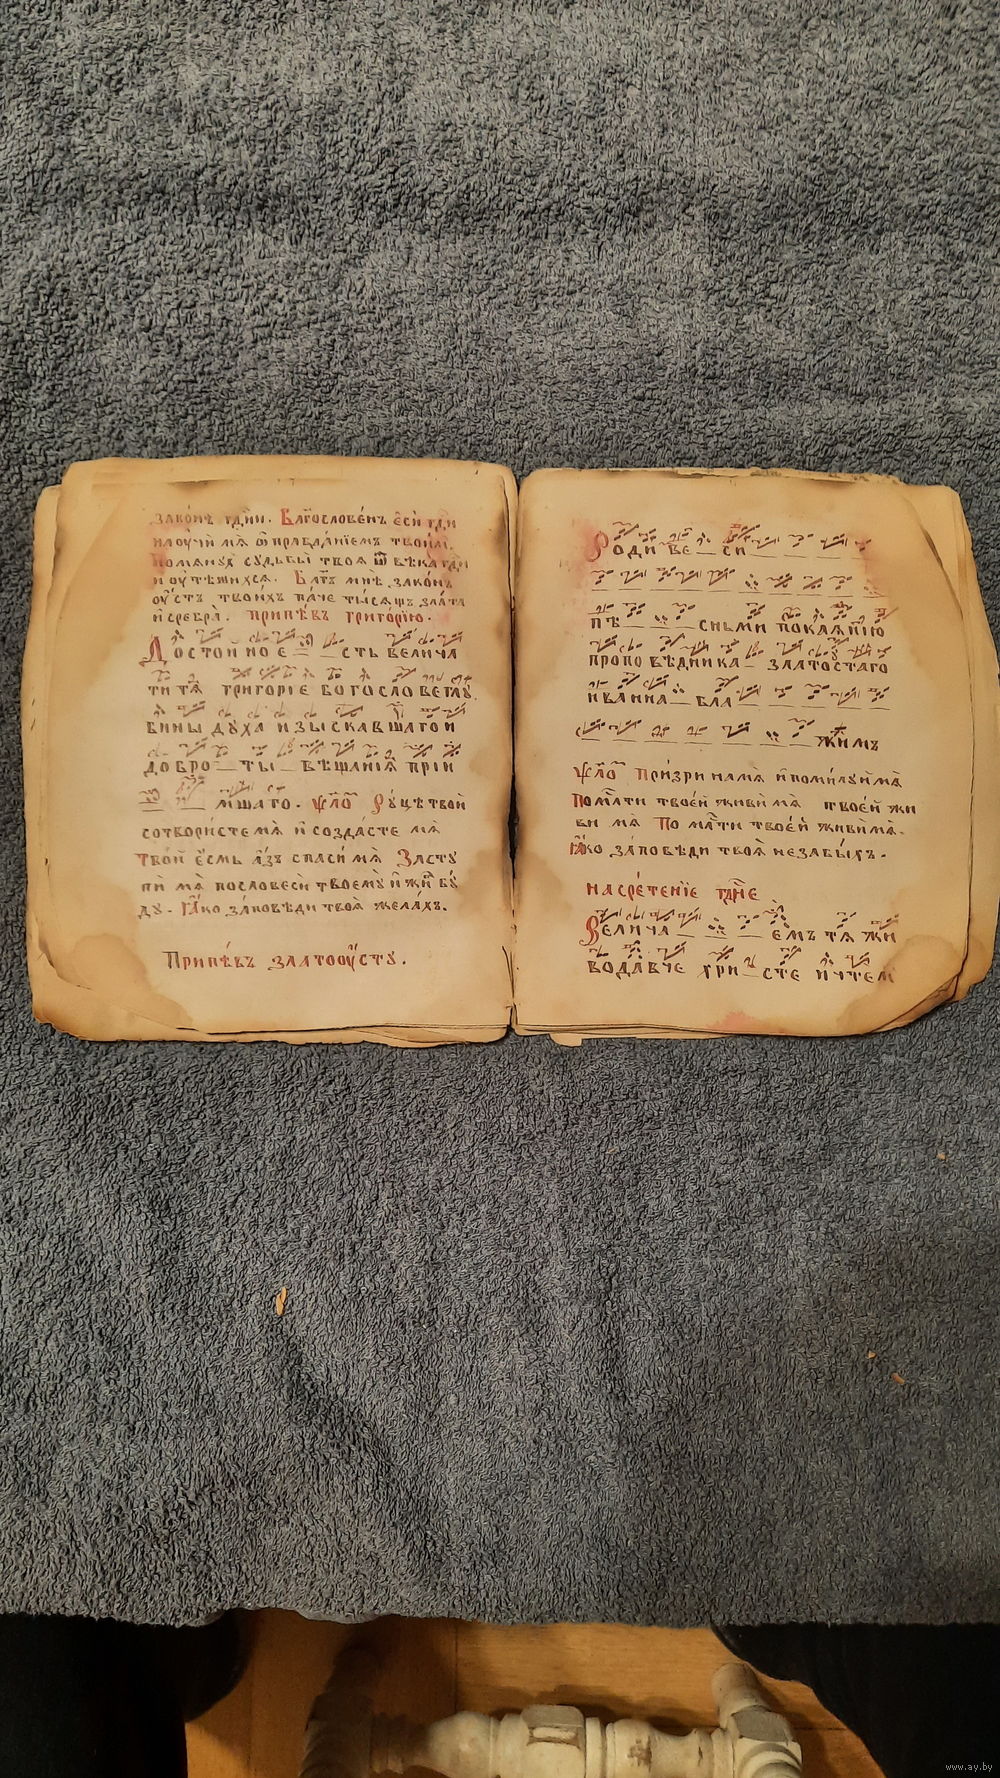 зако́нъ гдⷭ҇ни. Блгⷭ҇ослове́нъ є҆сѝ гдⷭ҇и
наѹчи́ мѧ ѡ҆правда́нїемъ твои́м.
Помѧнух судьбы̀ твоѧ̀ ѿ вѣ́ка гдⷭ҇и
и ѹтѣ́шихсѧ. Блгⷭ҇ъ мнѣ̀ зако́нъ
ѹ҆́стъ твои́хъ па́че ты́сѧщъ зла́та
и҆ сребра̀. припѣ́въ григо́рїю.
Досто и но е сть велича
ти тѧ григорїе богосло ве глу
бины духа изыскавшаго и
добро ты вѣщанїѧ прїи
мшаго. ѱло́ Ру́цѣ твои́
сотвори́сте мѧ̀ и҆ созда́сте мѧ̀
твой є҆́смь а҆́зъ спаси́ мѧ̀ Засту
пи́ мѧ̀ по словесѝ твоемꙋ̀ и҆ жи́въ бꙋ́
дꙋ. ꙗ҆́ко за́повѣди твоѧ̀ жела́хъ.
Припѣ́въ златоѹ́стꙋ.
Роди ве си
пѣ сньми покаѧнїю
пропо вѣдника златостаго
иванна бла
жимъ
ѱло́ При́зри на мѧ̀ и҆ поми́луй мѧ̀
По млⷭ҇ти твое́й живи́ мѧ̀ твое́й жи
ви мѧ̀ По млⷭ҇ти твое́й живи́ мѧ̀.
ꙗ҆́ко за́повѣди твоѧ̀ не забы́хъ.
на срѣ́тенїе гдⷭ҇не
Велича емъ тѧ жи
водавче хри сте и чтем
www.ay.by